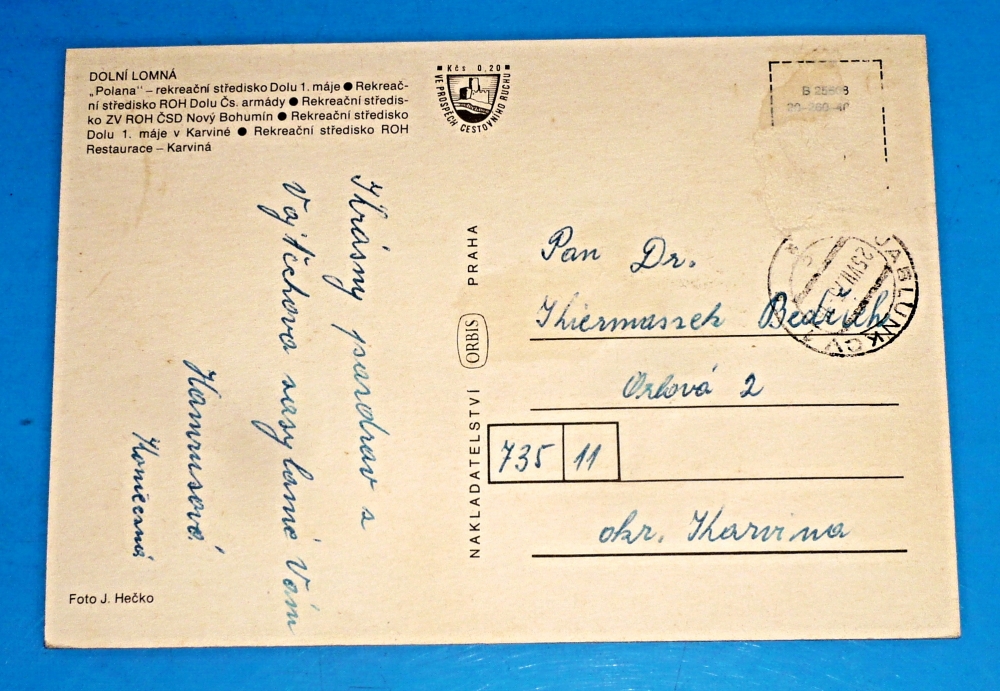 DOLNÍ LOMNÁ
„Polana" – rekreační středisko Dolu 1. máje ● Rekreač-
ní středisko ROH Dolu Čs. armády ● Rekreační středis-
ko ZV ROH ČSD Nový Bohumín ● Rekreační středisko
Dolu 1. máje v Karviné ● Rekreační středisko ROH
Restaurace – Karviná
Kčs 0,20
VE PROSPĚCH CESTOVNÍHO RUCHU
Krásný pozdrav z
Vojtěchova zasylamé Vám
Hamrusová
Konečná
Foto J. Hečko
NAKLADATELSTVÍ ORBIS PRAHA
JABLUNKOV 1
Pan Dr.
Khiermaszek Bedřich
Orlová 2
735 11
okr. Karvina